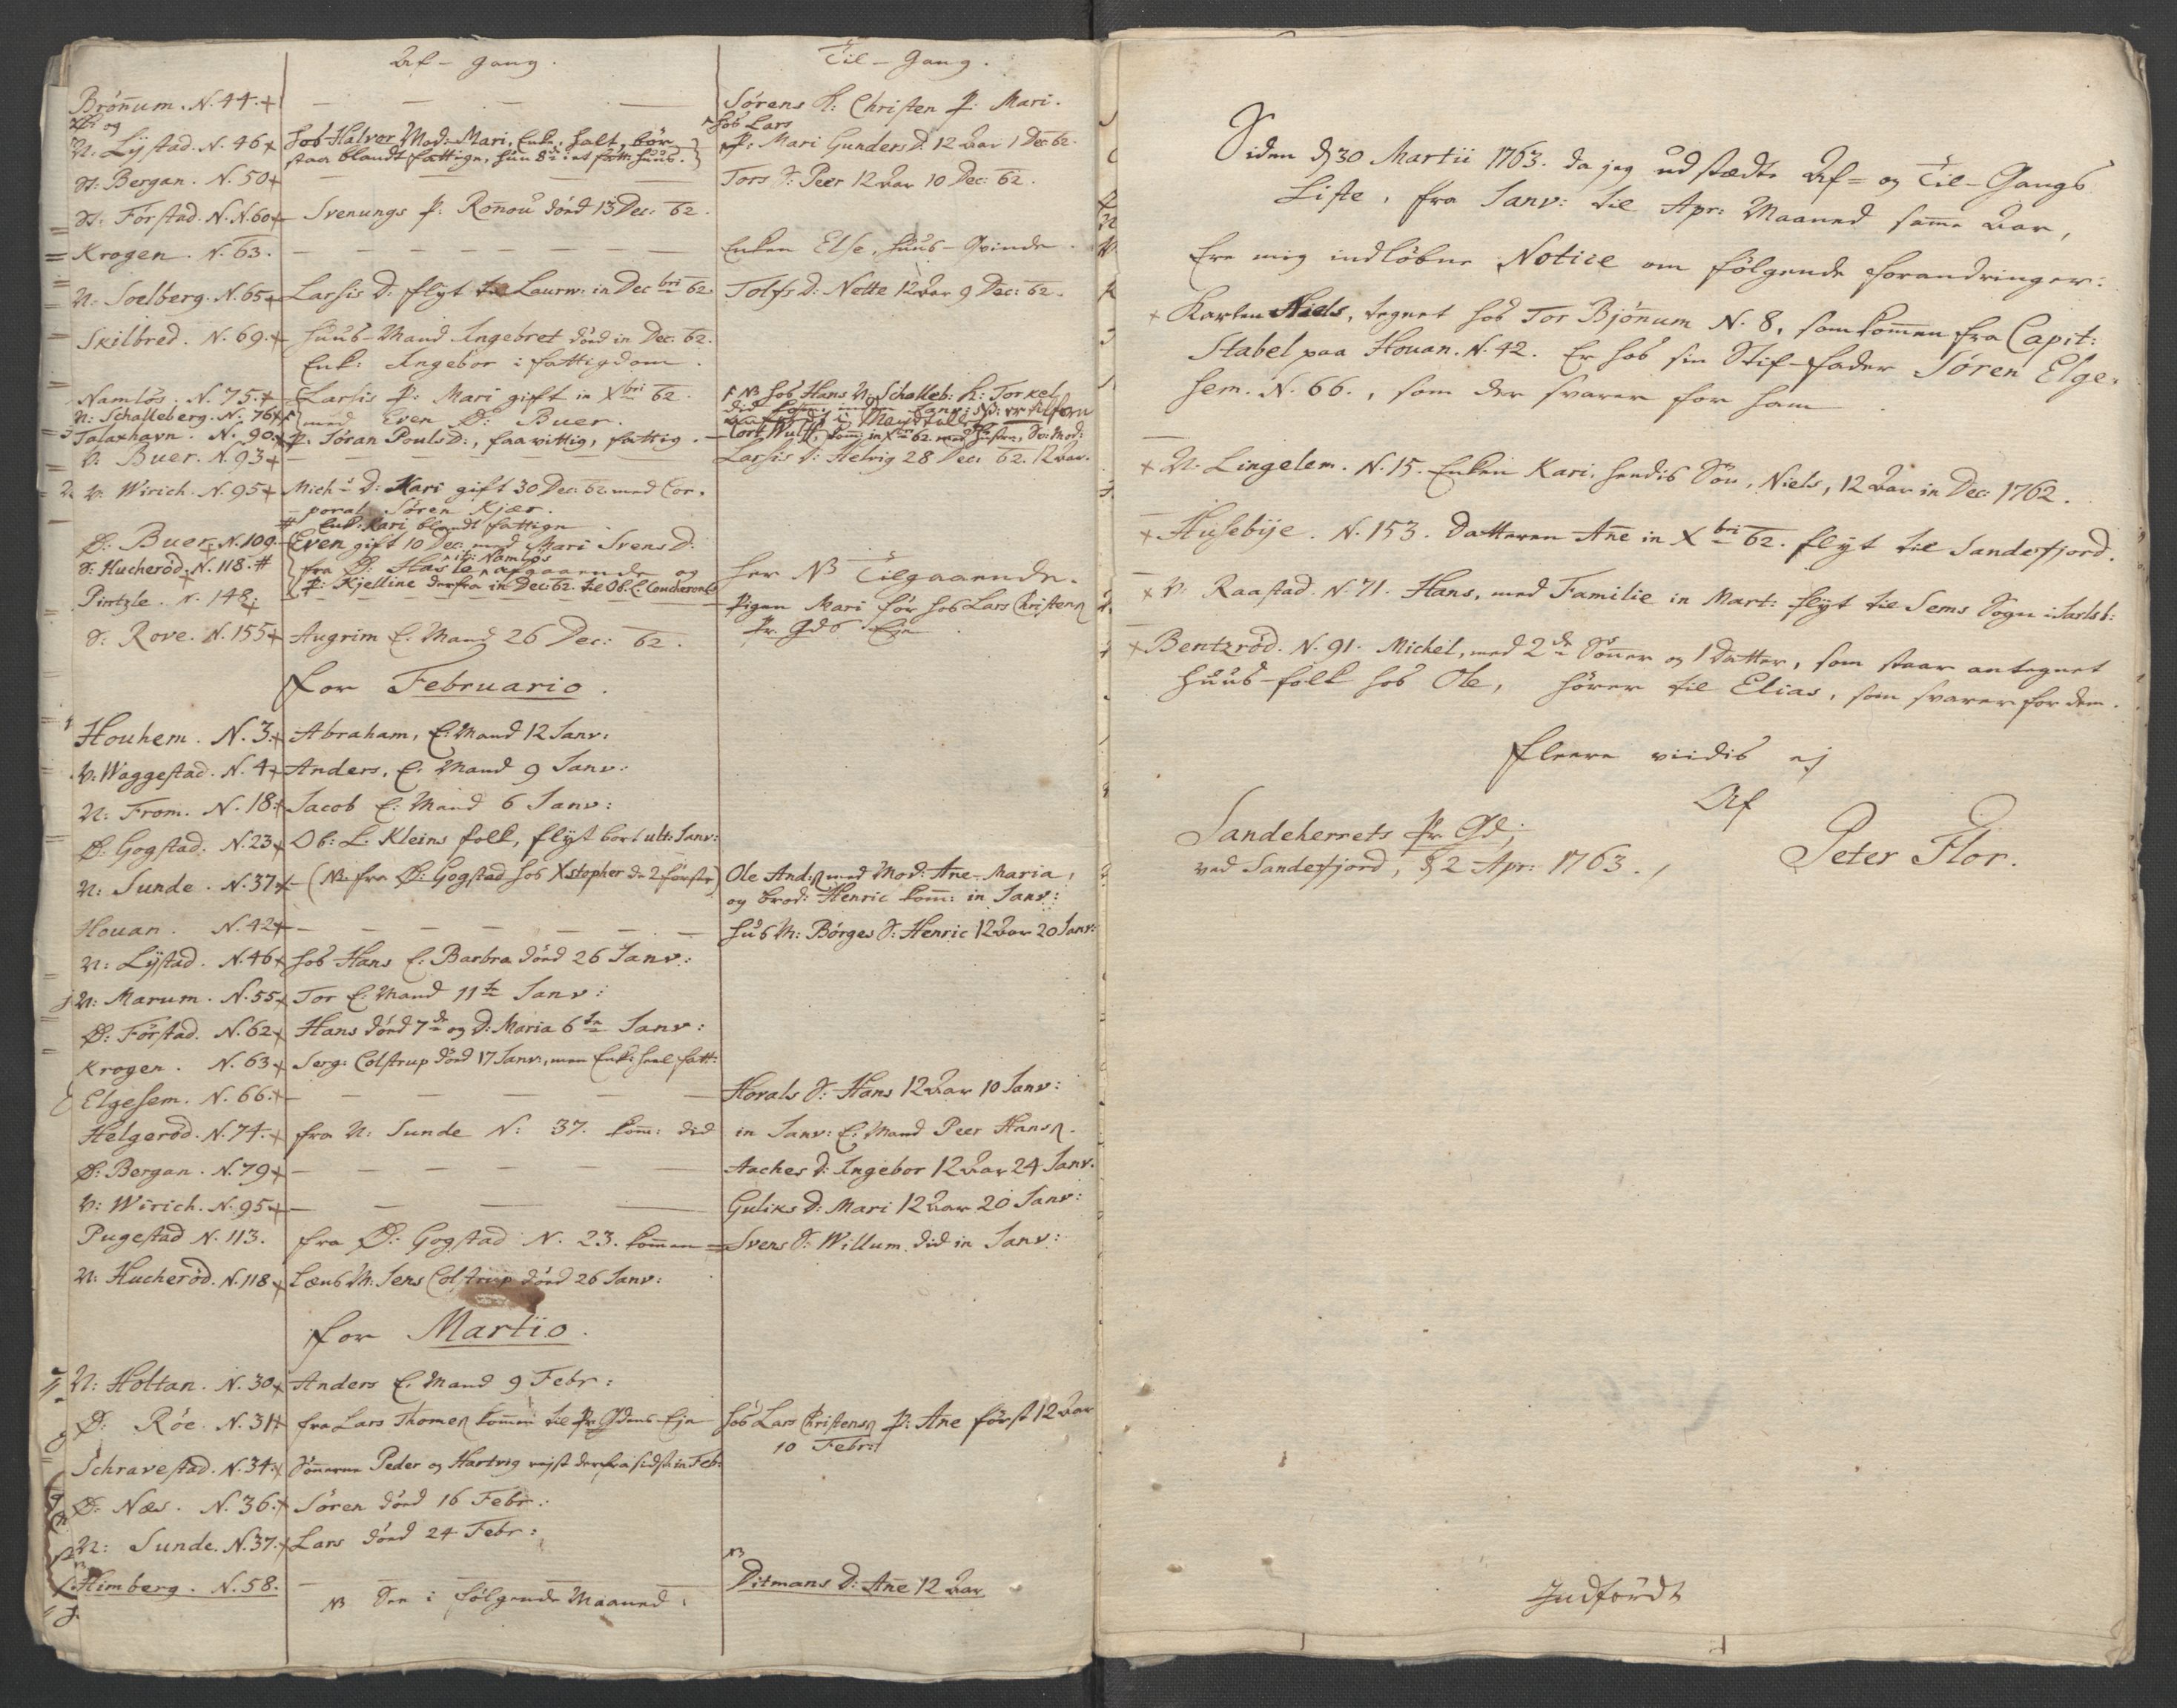 Af-gang. Til-Gang.
Brönum. N. 44. + — — — — Sörens K: Christen P: Mari.
N: Lystad. N. 46 + hos Halvor Mod: Mari, Enke, halt, bör hos Lars P: Mari Gunders D. 12 Aar 1 Dec: 62.
staa blandt fattige, hun 8de i et fatt: huus.
St: Bergan. N. 50 + — — — Tors S: Peer 12 Aar 10 Dec: 62.
St: Förstad. N. N. 60 + Svenungs P: Ronnou död 13 Dec: 62.
Krogen. N. 63. — — — Enken Else, huus-Qvinde.
N: Soelberg. N. 65 + Larsis D: flyt til Laurw: in Decbri 62. Tolfs D: Nette 12 Aar 9 Dec: 62.
Skilbred. N. 69. + Huus-Mand Ingebret död in Dec. 62.
Enk: Ingebor i fattigdom.
Namlös. N. 75. + Larsis P: Mari gift in Xbri 62. NB hos Hans N: Schalleb: K: Torkel
N: Schalleberg. N. 76 + med Even Ö: Buer.
Talaxhavn. N. 90. + P: Jöran Pouls D:, faavittig, fattig. — Cort Wulf, kom: in Xbr 62. med Hustru, Sv: Mod:
V: Buer. N. 93 + — — — Larsis D: Helvig 28 Dec: 62. 12 Aar.
V: Wirich. N. 95 + Mich: D: Kari gift 30 Dec 62 med Cor-
poral Sören Kjær.
# Enk: Kari blandt fattige
Ö: Buer. N. 109. — Even gift 10 Dec: med Mari Svens D:
S: Hucheröd. N. 118. # fra Ö: Hasle afgaaende og Her NB Tilgaaende.
Pintzle. N. 148. P: Kjelline derfra in Dec 62. til Ob: L: Coucherons Pigen Mari för hos Lars Christens
S: Rove. N. 155 + Augrim E: Mand 26 Dec: 62. Pr. Gds Eje
for Februario.
Houhem. N. 3. + Abraham, E: Mand 12 Janv:
V: Waggestad. N. 4 + Anders, E: Mand 9 Janv:
N: From. N. 18 + Jacob E: Mand 6 Janv:
Ö: Gogstad. N. 23 + Ob: L: Kleins folk, flyt bort ult: Janv:
N: Sunde. N. 37 + — (NB fra Ö: Gogstad hos Xstopher de 2 förste) Ole Ands: med Mod: Ane-Maria,
og Brod: Henric kom: in Janv:
Houan. N. 42 + — — — Hus M: Börges S: Henric 12 Aar 20 Janv:
N: Lystad. N. 46 + hos Hans E: Barbra död 26 Janv:
N: Marum. N. 55 + Tor E: Mand 11te Janv:
Ö: Förstad. N. 62 + Hans död 7de og D: Maria 6te Janv:
Krogen. N. 63 + Serg: Colstrup död 17 Janv:, men Enk: heel fatt:
Elgesem. N. 66. + — — — Horals S: Hans 12 Aar 10 Janv:
Helgeröd. N. 74. + fra N: Sunde N: 37. kom: did in Janv: E: Mand Peer Hans:
Ö: Bergan. N. 79 + — — — Aaches D: Ingebor 12 Aar 24 Janv.
V: Wirich. N. 95 + — — — Guliks D: Mari 12 Aar 20 Janv:
Pugestad N. 113. fra Ö: Gogstad N. 23. kommen = Svens S: Willum did in Janv:
N: Hucheröd. N. 118 + Lænds M: Jens Colstrup död 26 Janv:
for Martio.
N: Holtan. N. 30 + Anders E: Mand 9 Febr:
Ö: Röe. N. 31 + fra Lars Thomes: kommen til Pr. Gdens Eje hos Lars Christens: P: Ane först 12 Aar
10 Febr:
Schravestad. N. 34. + Sönnerne Peder og Hartvig rejst derfra sidst in Feb:
Ö: Næs. N. 36. + Sören död 16 Febr:
N: Sunde. N. 37. + Lars död 24 Febr:
NB Himberg. N. 58. — — — NB Ditmans D: Ane 12 Aar
NB See i fölgende Maaned.
Siden d 30 Martii 1763. da jeg udstædte Af- og Til-Gangs
Liste, fra Janv: til Apr: Maaned samme Aar,
Ere mig indlöbne Notice om fölgende forandringer:
+ Karlen Niels, tegnet hos Tor Bjönum N. 8, som kommen fra Capit:
Stabel paa Houan. N. 42. Er hos sin Stif-fader Sören Elge-
sem. N. 66., som der svarer for ham.
+ N: Lingelem. N. 15. Enken Kari, hendis Sön, Niels, 12 Aar in Dec: 1762.
+ Husebije. N. 153. Datteren Ane in Xbri 62. flyt til Sandefjord.
+ V: Raastad. N. 71. Hans, med Familie in Mart: flyt til Sems Sogn i Jarlsb:
+ Bentzröd. N. 91. Michel, med 2de Sönner og 1 Datter, som staar antegnet
Huus-folk hos Ole, hörer til Elias, som svarer for dem.
fleere viidis ej
Af
Sandeherrets Pr. Gd;
ved Sandefjord, d 2 Apr: 1763.
Peter Flor.
Indfördt